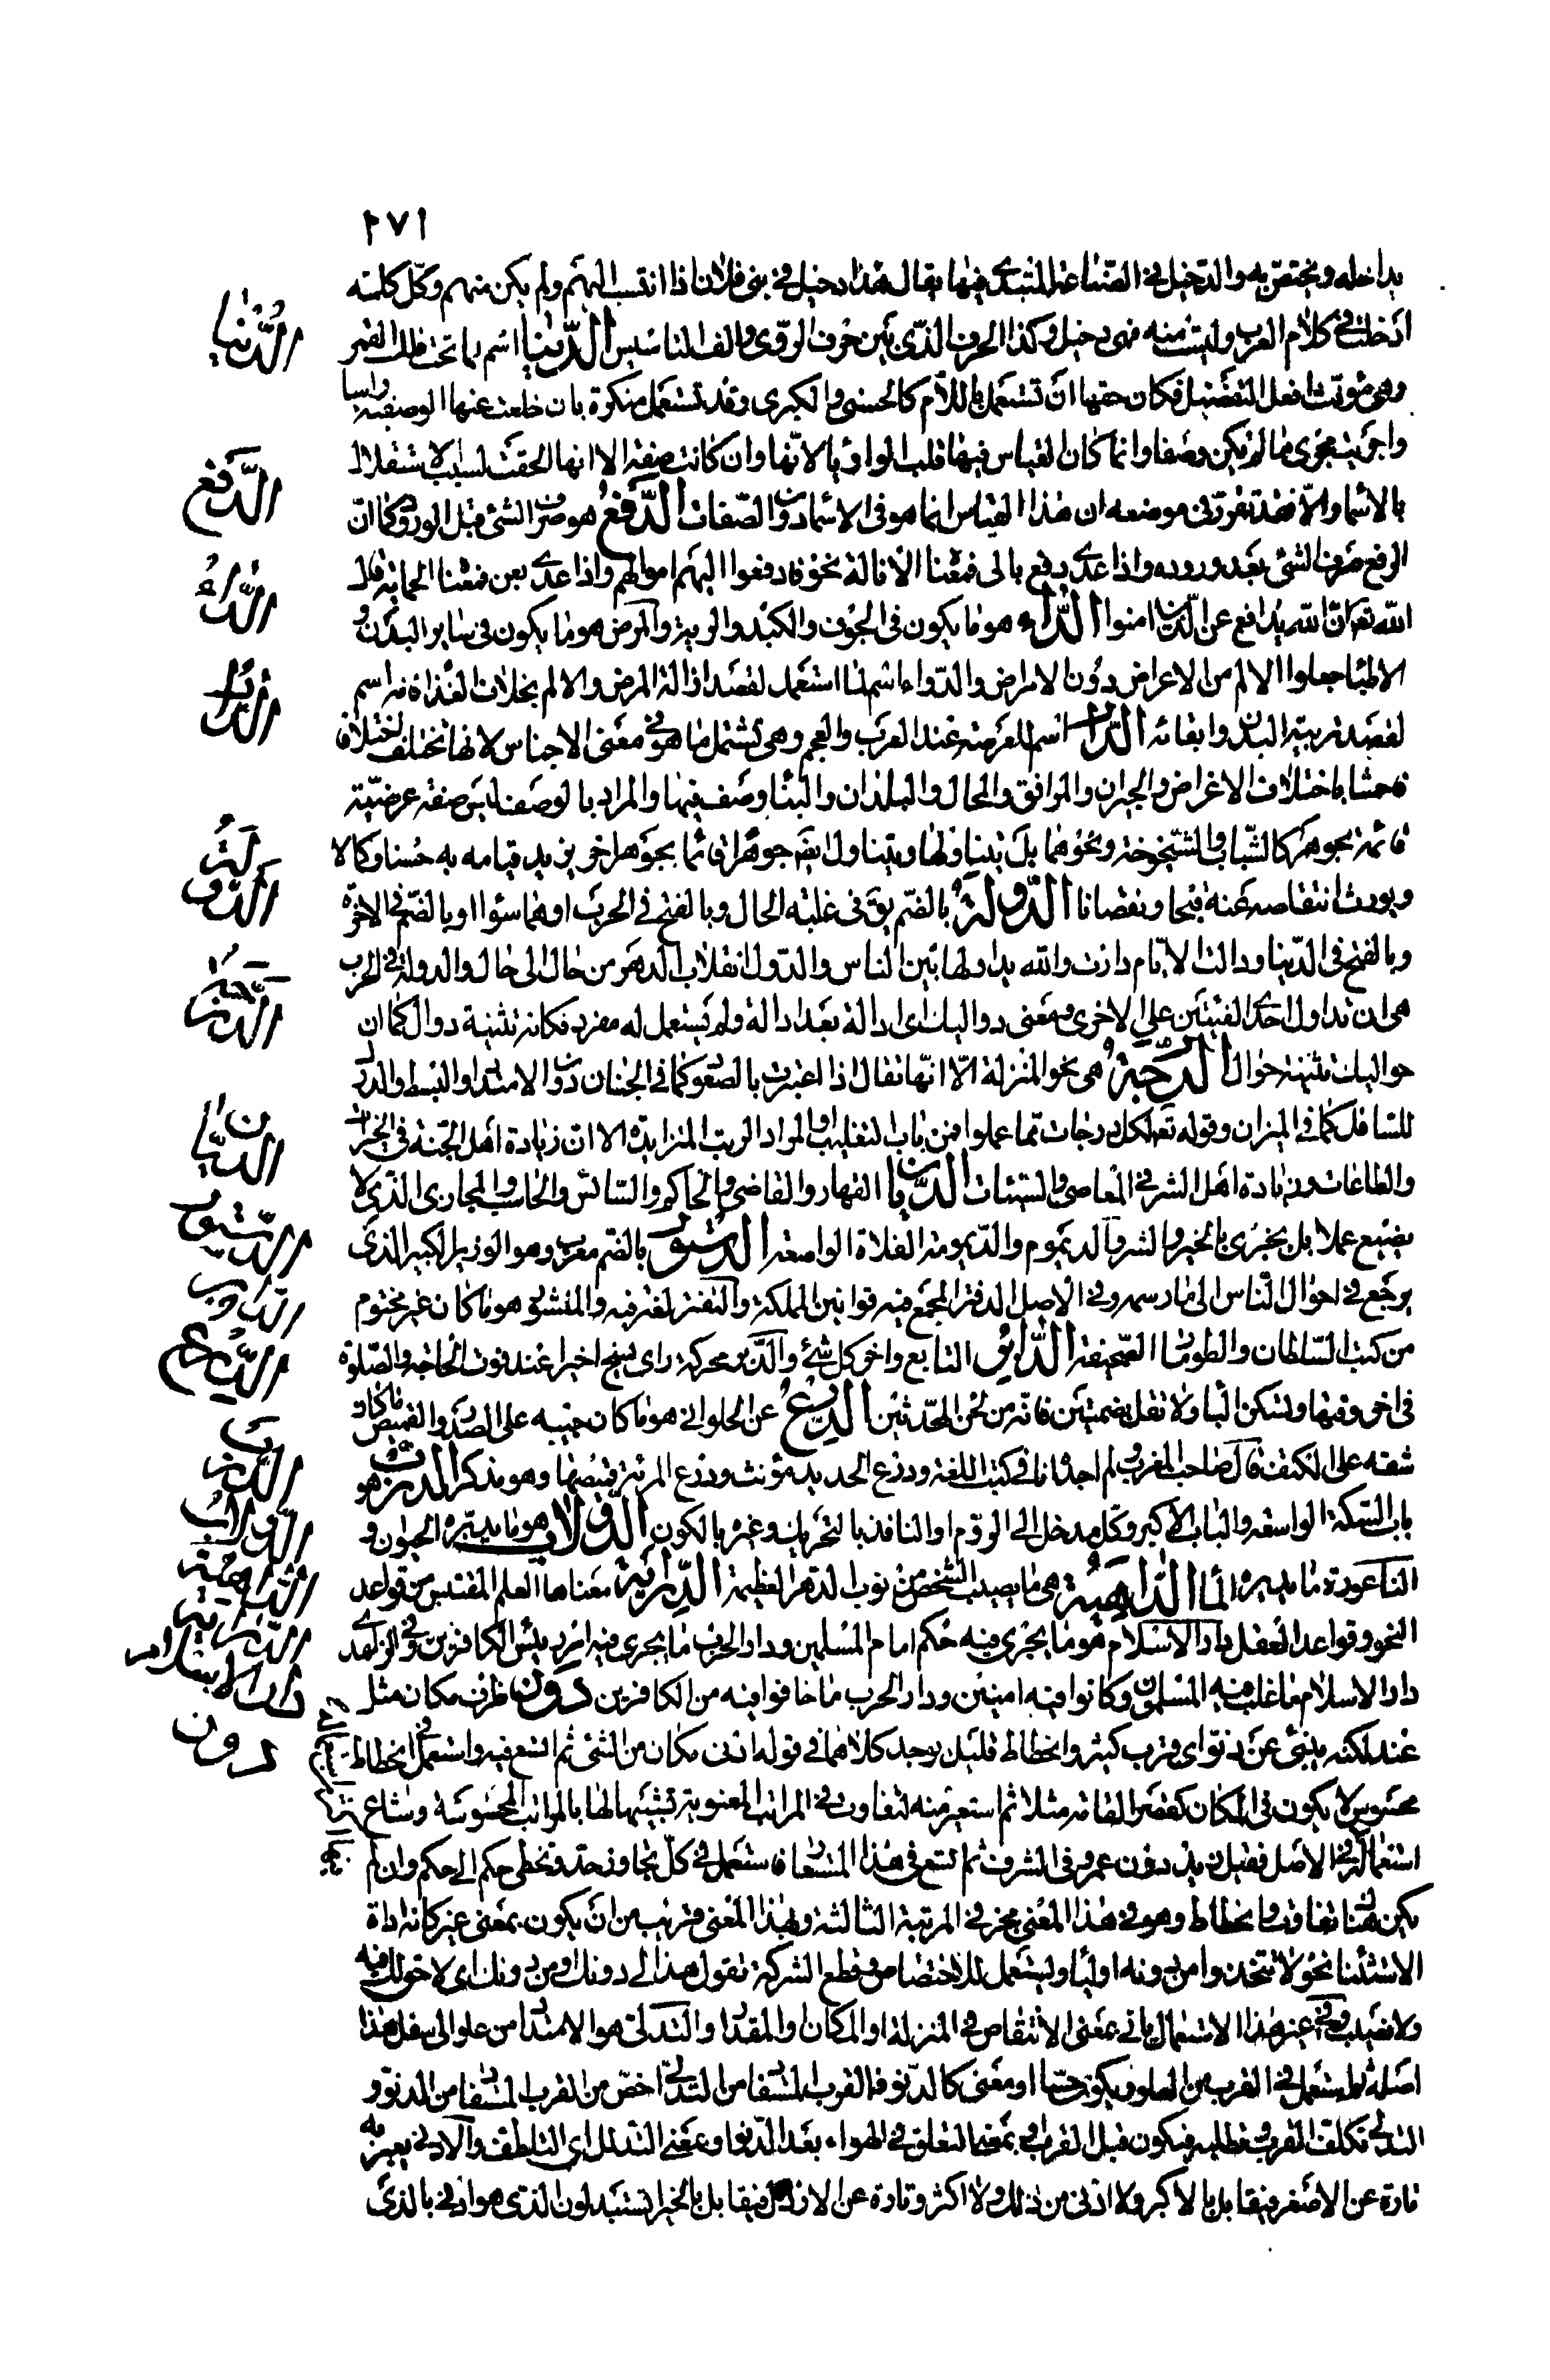 ٢٧١
يداخله ويختص به والدخيل في الصناعة المبتدئ فيها يقال هذا دخيل في بني فلان اذا انتسب اليهم ولم يكن منهم وكل كلمة
ادخلت في كلام العرب وليست منه فهي دخيل وكذا الحرف الذي بين حرف الروي والف التاسيس الدنيا اسم لما تحت فلك القمر
وهي مؤنث افعل التفضيل فكان حقها ان تستعمل باللام كالحسنى والكبرى وقد تستعمل منكرة بان خلعت عنها الوصفية راسا
واجريت مجرى ما لم يكن وصفا وانما كان القياس فيها قلب الواو ياء لانها وان كانت صفة الا انها الحقت لسبب الاستقلال
بالاسماء والا فقد تقرر في موضعه ان هذا القياس انما هو في الاسماء دون الصفات الدفع هو صرف الشئ قبل الورود كما ان
الرفع صرف الشئ بعد وروده واذا عدى دفع بالى فمعناه الانالة نحو فادفعوا اليهم اموالهم واذا عدى بعن فمعناه الحماية قال
الله تعالى ان الله يدافع عن الذين امنوا الداء هو ما يكون في الجوف والكبد والرية والمرض هو ما يكون في ساير البدن و
الاطباء جعلوا الالم من الاعراض دون الامراض والدواء اسم لما استعمل لقصد ازالة المرض والالم بخلاف الغذاء فانه اسم
لقصد تربية البدن وابقائه الدار اسم للعرصة عند العرب والعجم وهي تشتمل ما هو في معنى الاجناس لانها تختلف اختلافا
فاحشا باختلاف الاغراض والجيران والمرافق والمحال والبلدان والبناء وصف فيها والمراد بالوصف ليس صفة عرضية
قائمة بجوهر كالشباب والشيخوخة ونحوهما بل يتناولها ويتناول ايضا جوهرا قائما بجوهر اخر يزيد قيامه به حسنا وكمالا
ويورث انتقاصه عنه قبحا ونقصانا الدولة بالضم يق في غلبة الحال وبالفتح في الحرب او هما سواء او بالضم في الاخرة
وبالفتح في الدنيا ودالت الايام دارت والله يداولها بين الناس والدول انقلاب الدهر من حال الى حال والدولة في الحرب
هي ان تداول احدى الفئتين على الاخرى ومعنى دواليك اى ادالة بعد ادالة ولم يستعمل له مفرد فكانه تثنية دوال كما ان
حواليك تثنية حوال الدرجة هي نحو المنزلة الا انها تقال اذا اعتبرت بالصعود كما في الجنان دون الامتداد والبسط والدرك
للسافل كما في الميزان وقوله تعالى لكل درجات مما عملوا فمن باب التغليب او المراد الرتب المتزايدة الا ان زيادة اهل الجنة في الخيرات
والطاعات وزيادة اهل الشر في المعاصي والسيئات الديان القهار والقاضي والحاكم والسائس والحاسب والمجازى الذى لا
يضيع عملا بل يجزى بالخير والشر والديموم والديمومة الفلاة الواسعة الدستور بالضم معرب وهو الوزير الكبير الذى
يرجع في احوال الناس الى ما رسمه وفي الاصل الدفتر المجمع فيه قوانين المملكة والمنشور هو ما كان غير مختوم
من كتب السلطان والطومار الصحيفة الدابر التابع واخر كل شئ والدبرى محركة راى يسنح اخيرا عند فوت الحاجة والصلوة
في اخر وقتها وتسكن الباء ولا تقل بضمتين فانه من لحن المحدثين الدرع عن الحلواني هو ما كان جيبه على الصدر والقميص ما كان
شقه على الكتف قال صاحب المغرب لم اجد انا في كتب اللغة ودرع الحديد مؤنث ودرع المرءة قميصها وهو مذكر الدرب هو
باب السكة الواسعة والباب الاكبر وكل مدخل الى الروم او النافذ بالتحريك وغيره بالسكون الدولاب هو ما يديره الحيوان و
الناعورة ما يديره الماء الداهية هي ما يصيب الشخص من نوب الدهر العظيمة الدراية معناها العلم المقتبس من قواعد
النحو وقواعد العقل دار الاسلام هو ما يجرى فيه حكم امام المسلمين ودار الحرب ما يجرى فيه امر رئيس الكافرين وفي الزاهدى
دار الاسلام ما غلب فيه المسلمون وكانوا فيه امنين ودار الحرب ما خافوا فيه من الكافرين دون ظرف مكان مثل
عند لكنه ينبئ عن دنو اى قرب كثير وانحطاط قليل يوجد كلاهما في قوله ادنى مكان من الشئ ثم اتسع فيه واستعمل في انحطاط
محسوس لا يكون في المكان كقصر القامة مثلا ثم استعير منه لتفاوت في المراتب المعنوية تشبيها لها بالمراتب المحسوسة وشاع
استعماله في الاصل فقيل زيد دون عمرو في الشرف ثم اتسع في هذا المستعار فاستعمل في كل تجاوز حد وتخطى حكم الى حكم وان لم
يكن هناك تفاوت وانحطاط وهو في هذا المعنى مجاز في المرتبة الثالثة وبهذا المعنى قريب من ان يكون بمعنى غير كانه اداة
الاستثناء نحو لا تتخذوا من دونه اولياء ويستعمل للاختصاص وقطع الشركة تقول هذا لى دونك او من دونك اى لا حق لك فيه
ولا نصيب وفي غير هذا الاستعمال ياتى بمعنى الانتقاص في المنزلة او المكان والمقدار والتدلى هو الامتداد من علو الى سفل هذا
اصله ثم استعمل في القرب من العلو ويكون حسا او معنى كالدنو فالقرب المستفاد من التدلى اخص من القرب المستفاد من الدنو و
التدلى تكلف القرب وتطلبه فيكون قبل القرب او بمعنى التعلق في الهواء بعد الدنو او بمعنى التدلل اى التلطف والادنى يعبر به
تارة عن الاصغر فيقابل بالاكبر ولا ادنى من ذلك ولا اكثر وتارة عن الارذل فيقابل بالخير اتستبدلون الذى هو ادنى بالذى
الدنيا
الدفع
الداء
الدار
الدولة
الدرجة
الديان
الدستور
الدابر
الدرع
الدرب
الدولاب
الداهية
الدراية
دار الاسلام
دون